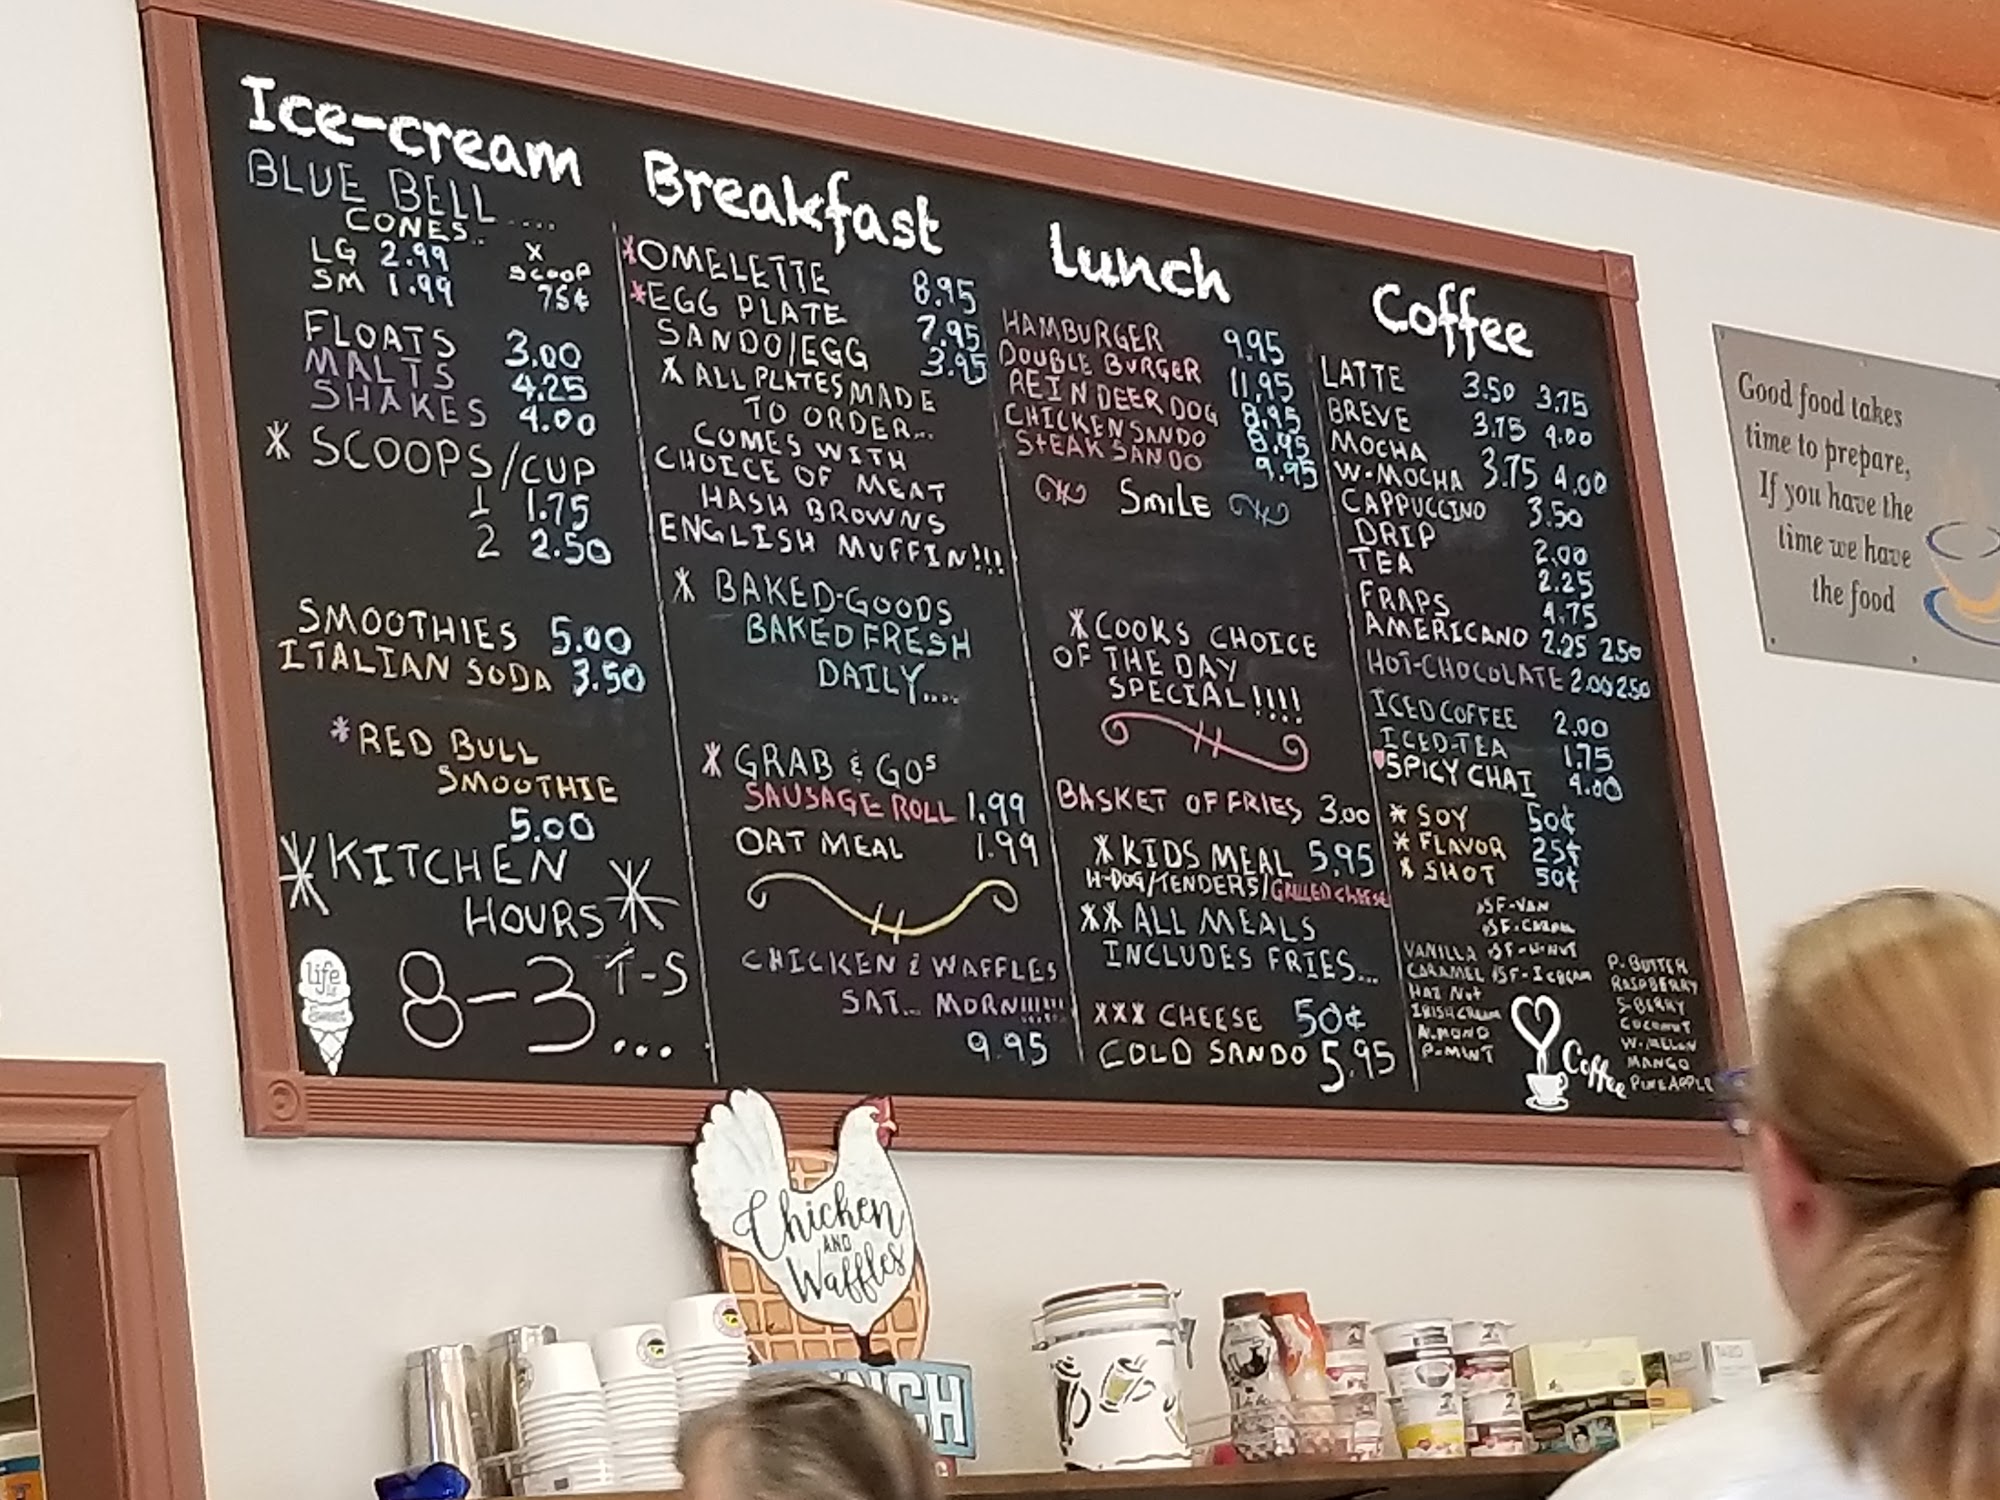 Ice-cream
BLUE BELL....
CONES..
LG 2.99 X
SM 1.99 SCOOP
75¢
FLOATS 3.00
MALTS 4.25
SHAKES 4.00
* SCOOPS/CUP
1 1.75
2 2.50
SMOOTHIES 5.00
ITALIAN SODA 3.50
*RED BULL
SMOOTHIE
5.00
*KITCHEN
HOURS*
8-3 T-S
...
life
is
Sweet
Breakfast
*OMELETTE 8.95
*EGG PLATE 7.95
SANDO/EGG 3.95
* ALL PLATES MADE
TO ORDER...
COMES WITH
CHOICE OF MEAT
HASH BROWNS
ENGLISH MUFFIN!!!
* BAKED-GOODS
BAKED FRESH
DAILY....
* GRAB & GOS
SAUSAGE ROLL 1.99
OAT MEAL 1.99
CHICKEN & WAFFLES
SAT... MORN!!!!!!
9.95
Lunch
HAMBURGER 9.95
DOUBLE BURGER 11.95
REINDEER DOG 8.95
CHICKEN SANDO 8.95
STEAK SANDO 9.95
SMILE
*COOKS CHOICE
OF THE DAY
SPECIAL!!!!
BASKET OF FRIES 3.00
*KIDS MEAL 5.95
H-DOG/TENDERS/GRILLED CHEESE
** ALL MEALS
INCLUDES FRIES...
XXX CHEESE 50¢
COLD SANDO 5.95
Coffee
LATTE 3.50 3.75
BREVE 3.75 4.00
MOCHA
W-MOCHA 3.75 4.00
CAPPUCCINO 3.50
DRIP 2.00
TEA 2.25
FRAPS 4.75
AMERICANO 2.25 2.50
HOT-CHOCOLATE 2.00 2.50
ICED COFFEE 2.00
ICED-TEA 1.75
SPICY CHAI 4.00
* SOY 50¢
* FLAVOR 25¢
* SHOT 50¢
SF-VAN
SF-CARML
VANILLA SF-H-NUT
CARAMEL SF-ICREAM
HAZ NUT
IRISH CREAM
ALMOND
P-MINT
P. BUTTER
RASPBERRY
S-BERRY
COCONUT
W. MELON
MANGO
PINEAPPLE
Coffee
Good food takes
time to prepare,
If you have the
time we have
the food
Chicken
AND
Waffles